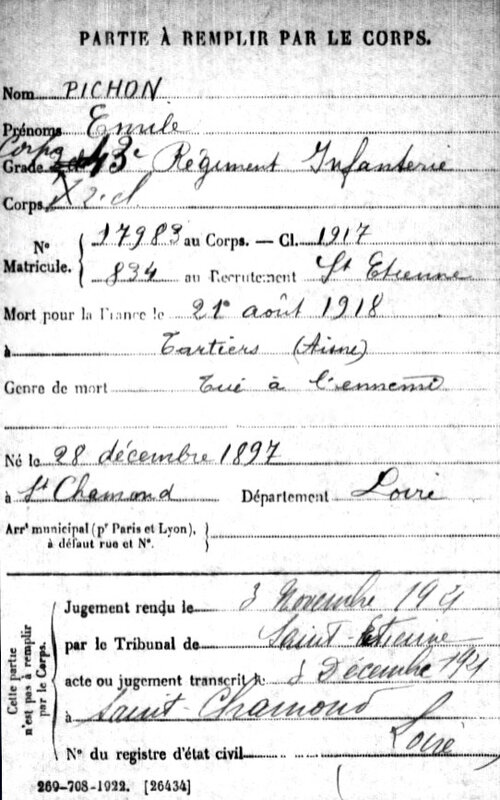 PARTIE À REMPLIR PAR LE CORPS.
Nom PICHON
Prénoms Emile
Corps
Grade 43e Régiment Infanterie
Corps 2. cl
N° Matricule. 17983 au Corps. — Cl. 1917
834 au Recrutement St Etienne
Mort pour la France le 21e août 1918
à Tartiers (Aisne)
Genre de mort Tué à l'ennemi
Né le 28 décembre 1897
à St Chamond Département Loire
Arrt municipal (pr Paris et Lyon),
à défaut rue et N°.
Cette partie n'est pas à remplir par le Corps.
Jugement rendu le 3 Novembre
par le Tribunal de Saint-Etienne
acte ou jugement transcrit le Décembre
à Saint-Chamond
Loire
N° du registre d'état civil
269-708-1922. [26434]